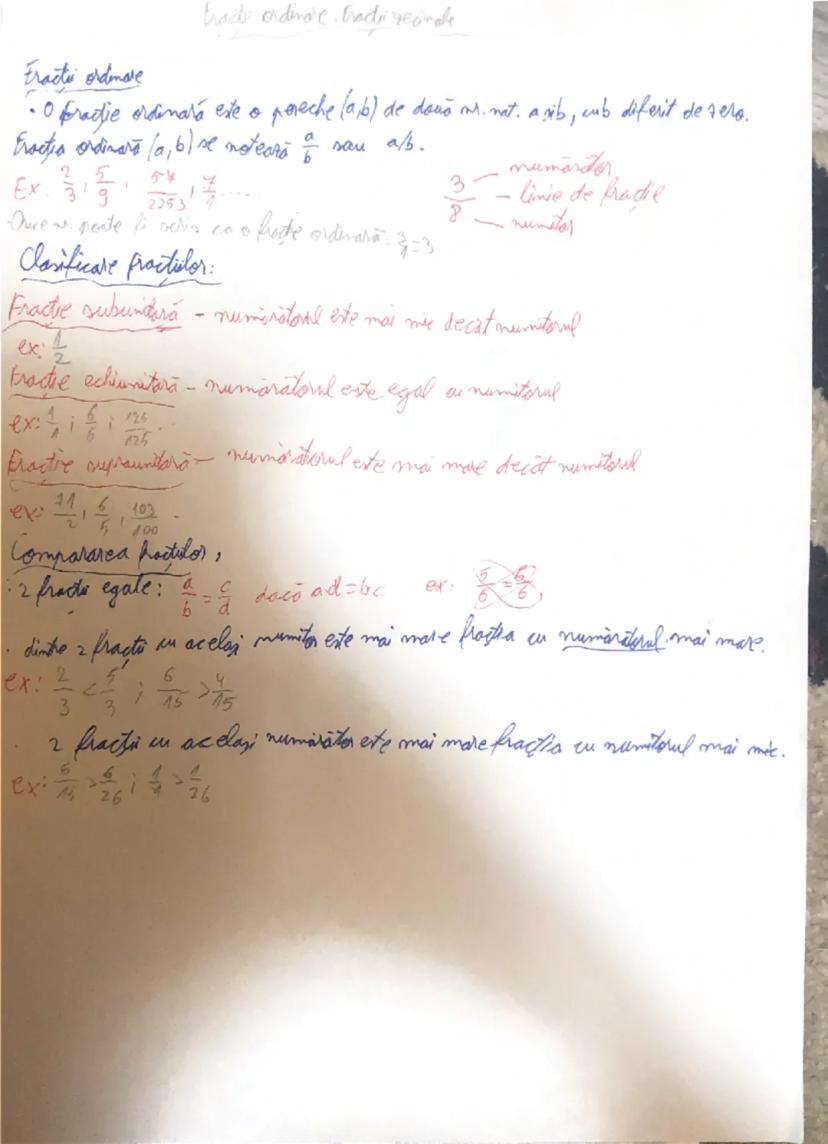 Fracții ordinare. Fracții zecimale
Fracții ordinare
• O fracție ordinară este o pereche (a,b) de două nr. nat. a și b, cu b diferit de zero.
Fracția ordinară (a,b) se notează a/b sau a/b.
Ex: 2/3, 5/9, 54/2253, 7/1 ....
3/8 — numărător
— linie de fracție
— numitor
Orice nr. poate fi scris ca o fracție ordinară: 3/1=3
Clasificare fracțiilor:
Fracție subunitară – numărătorul este mai mic decât numitorul
ex: 1/2
Fracție echiunitară – numărătorul este egal cu numitorul
ex: 1/1; 6/6; 125/125...
Fracție supraunitară – numărătorul este mai mare decât numitorul
ex: 11/2, 6/5, 103/100.
Compararea fracțiilor,
2 fracții egale: a/b = c/d dacă ad=bc ex: 5/6
• dintre 2 fracții cu același numitor este mai mare fracția cu numărătorul mai mare.
ex: 2/3 < 5/3; 6/15 > 4/15
• 2 fracții cu același numărător este mai mare fracția cu numitorul mai mic.
ex: 6/15 > 6/26; 1/7 > 1/26